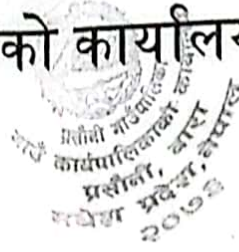 को कार्यालय
प्रसौनी गाउँपालिका
गाउँ कार्यपालिकाको कार्यालय
प्रसौनी, बारा
मधेश प्रदेश, नेपाल
२०७४